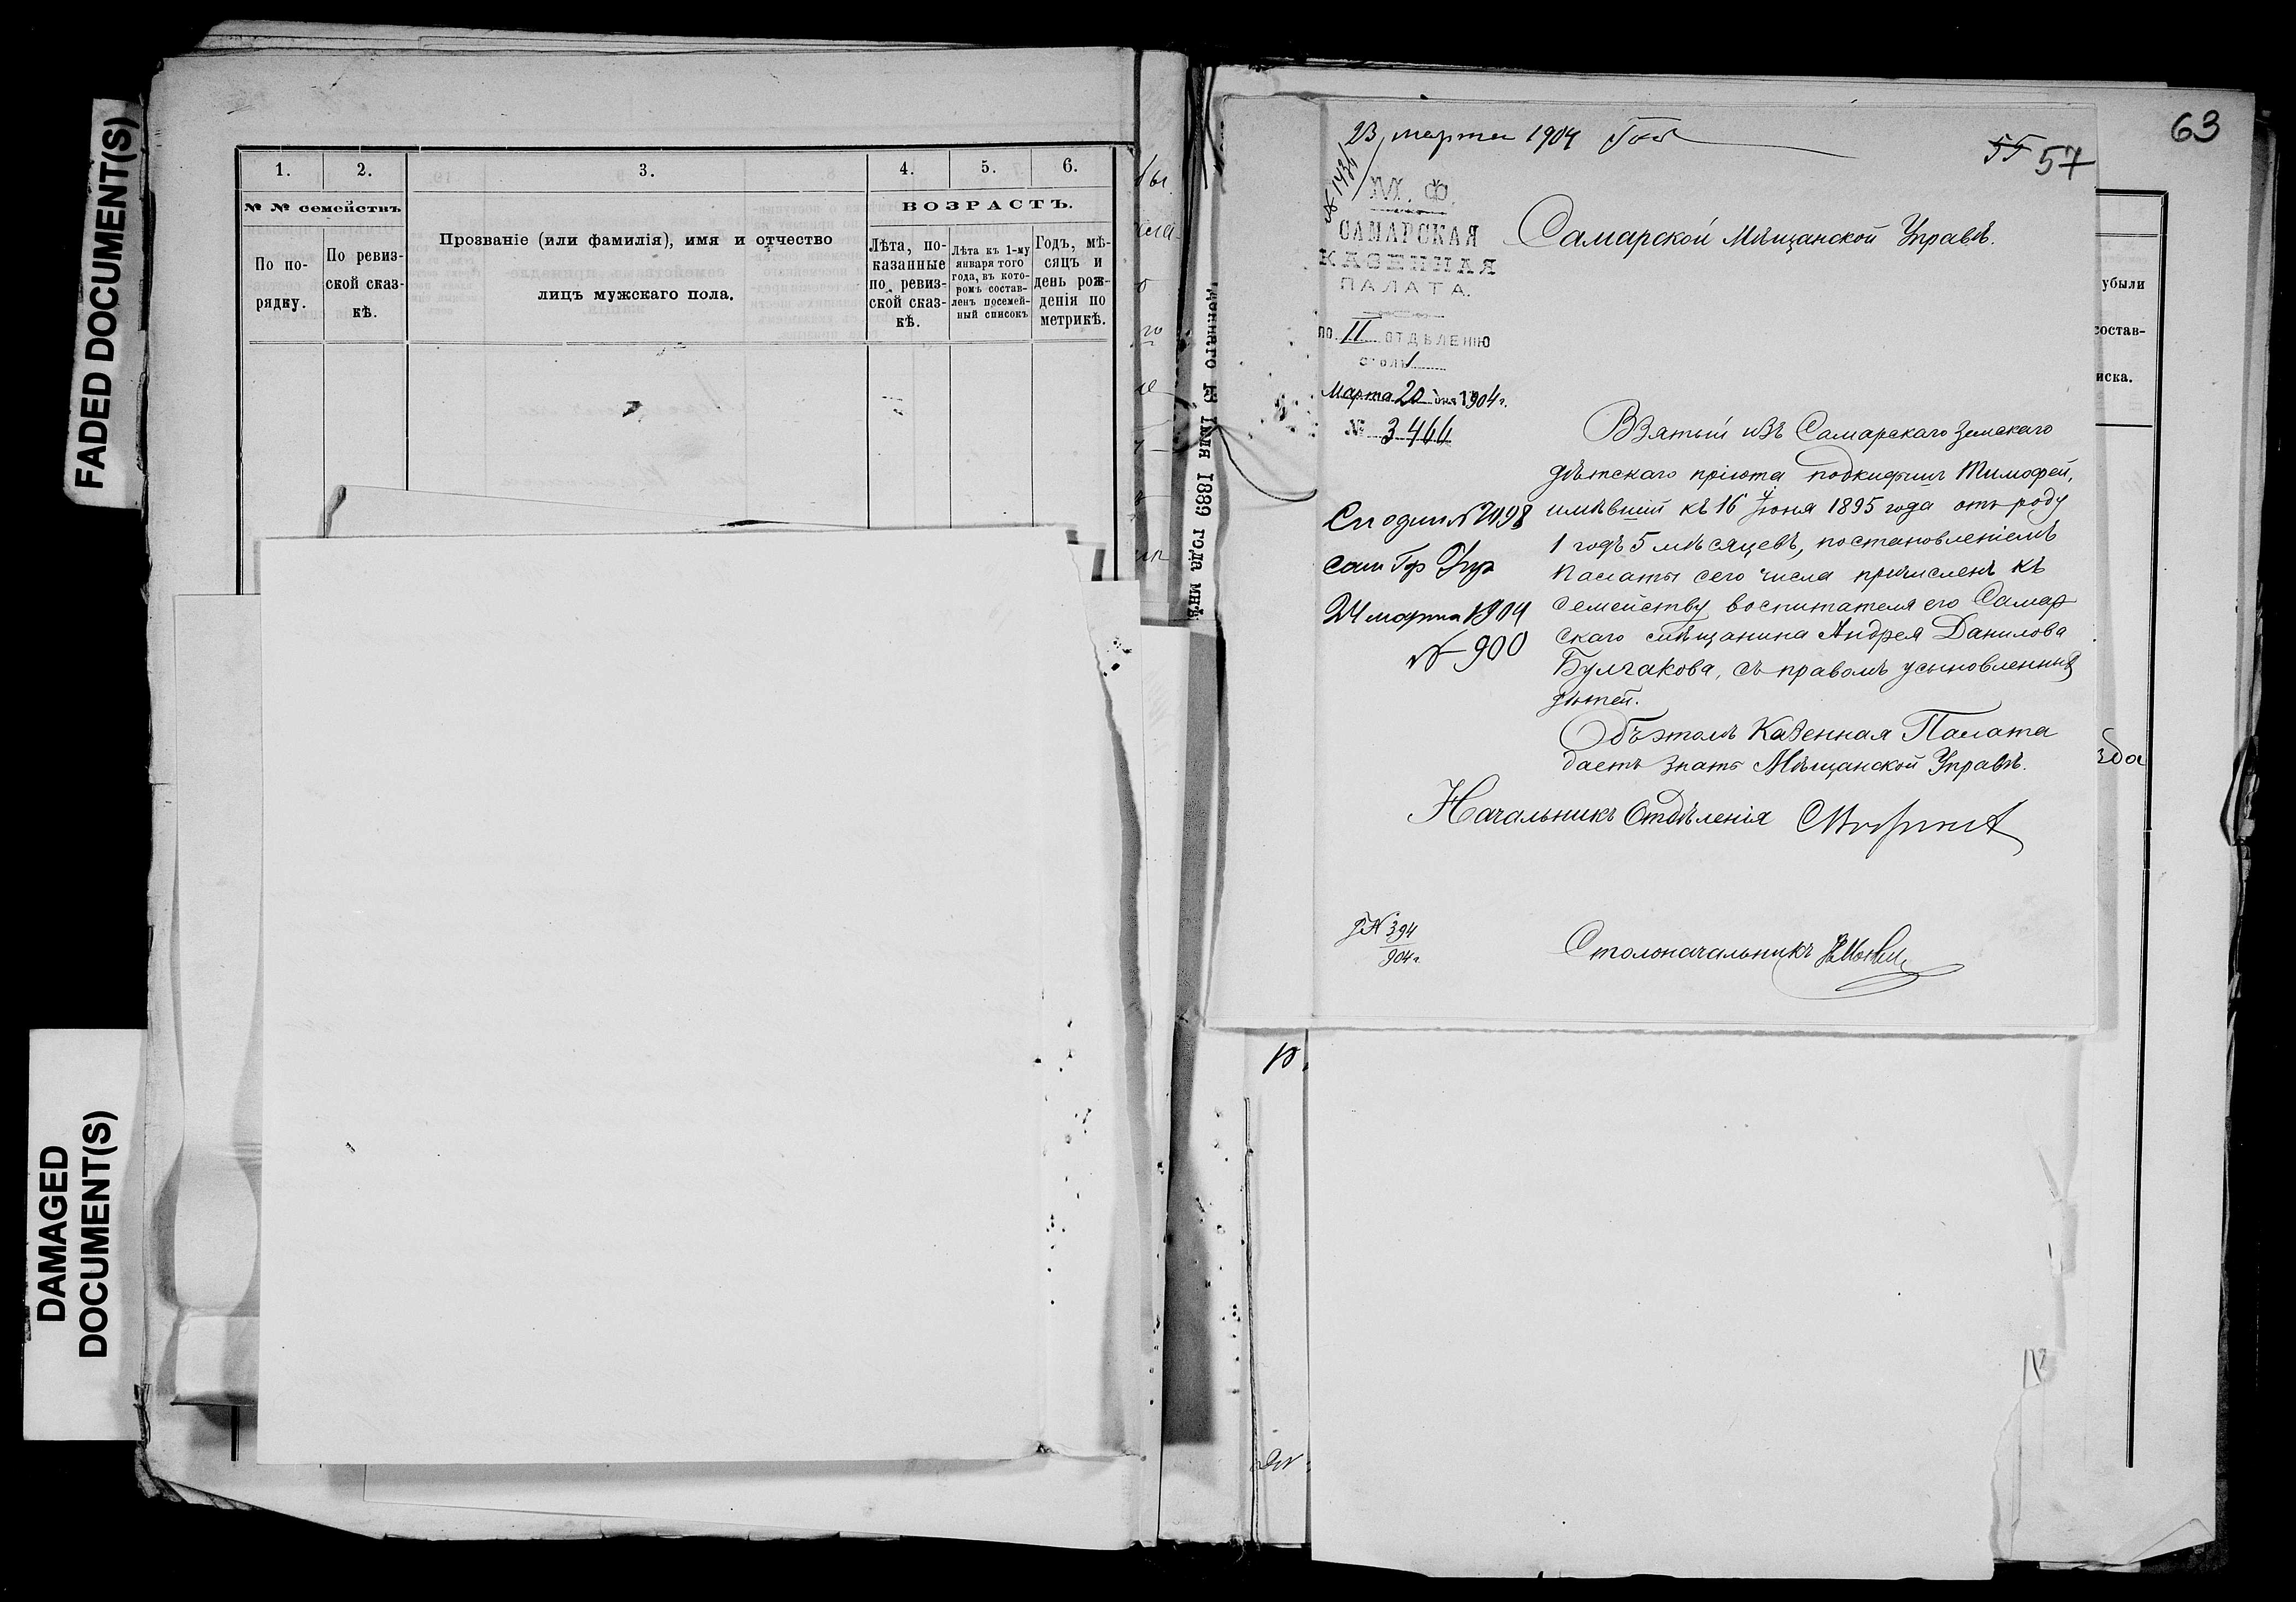 FADED DOCUMENT(S)
DAMAGED
DOCUMENT(S)
1.
2.
3.
4.
5.
6.
№ № семействъ
ВОЗРАСТЪ.
По по-
рядку.
По ревиз-
ской сказ-
кѣ.
Прозваніе (или фамилія), имя и отчество
лицъ мужскаго пола.
Лѣта, по-
казанные
по ревиз-
ской сказ-
кѣ.
Лѣта къ 1-му
января того
года, въ кото-
ромъ состав-
ленъ посемей-
ный списокъ
Годъ, мѣ-
сяцъ и
день рож-
денія по
метрикѣ.
1889 года
63
23 марта 1904
55 57
М. Ф.
САМАРСКАЯ
КАЗЕННАЯ
ПАЛАТА.
по II ОТДѢЛЕНІЮ
столъ 1
Марта 20 дня 1904 г.
№ 3466
Самарской Мѣщанской Управѣ.
Взятый изъ Самарскаго земскаго
дѣтскаго пріюта подкидышъ Тимофей,
имѣвшій къ 16 Іюня 1895 года отъ роду
1 годъ 5 мѣсяцевъ, постановленіемъ
Палаты сего числа причисленъ къ
семейству воспитателя его Самар
скаго мѣщанина Андрея Данилова
Булгакова, съ правомъ усыновленныхъ
дѣтей.
Объ этомъ Казенная Палата
даетъ знать Мѣщанской Управѣ.
24 марта 1904
№ 900
Начальникъ Отдѣленія
№ 394
904 г.
Столоначальникъ
убыли
состав-
иска.